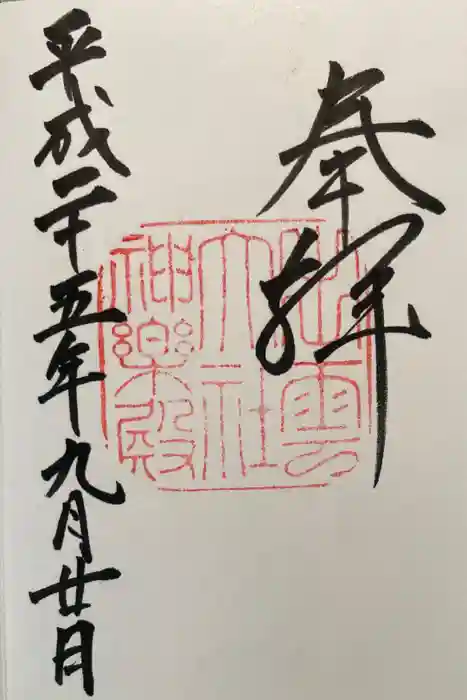 奉拝
出雲
大社
神楽殿
平成二十五年九月廿日